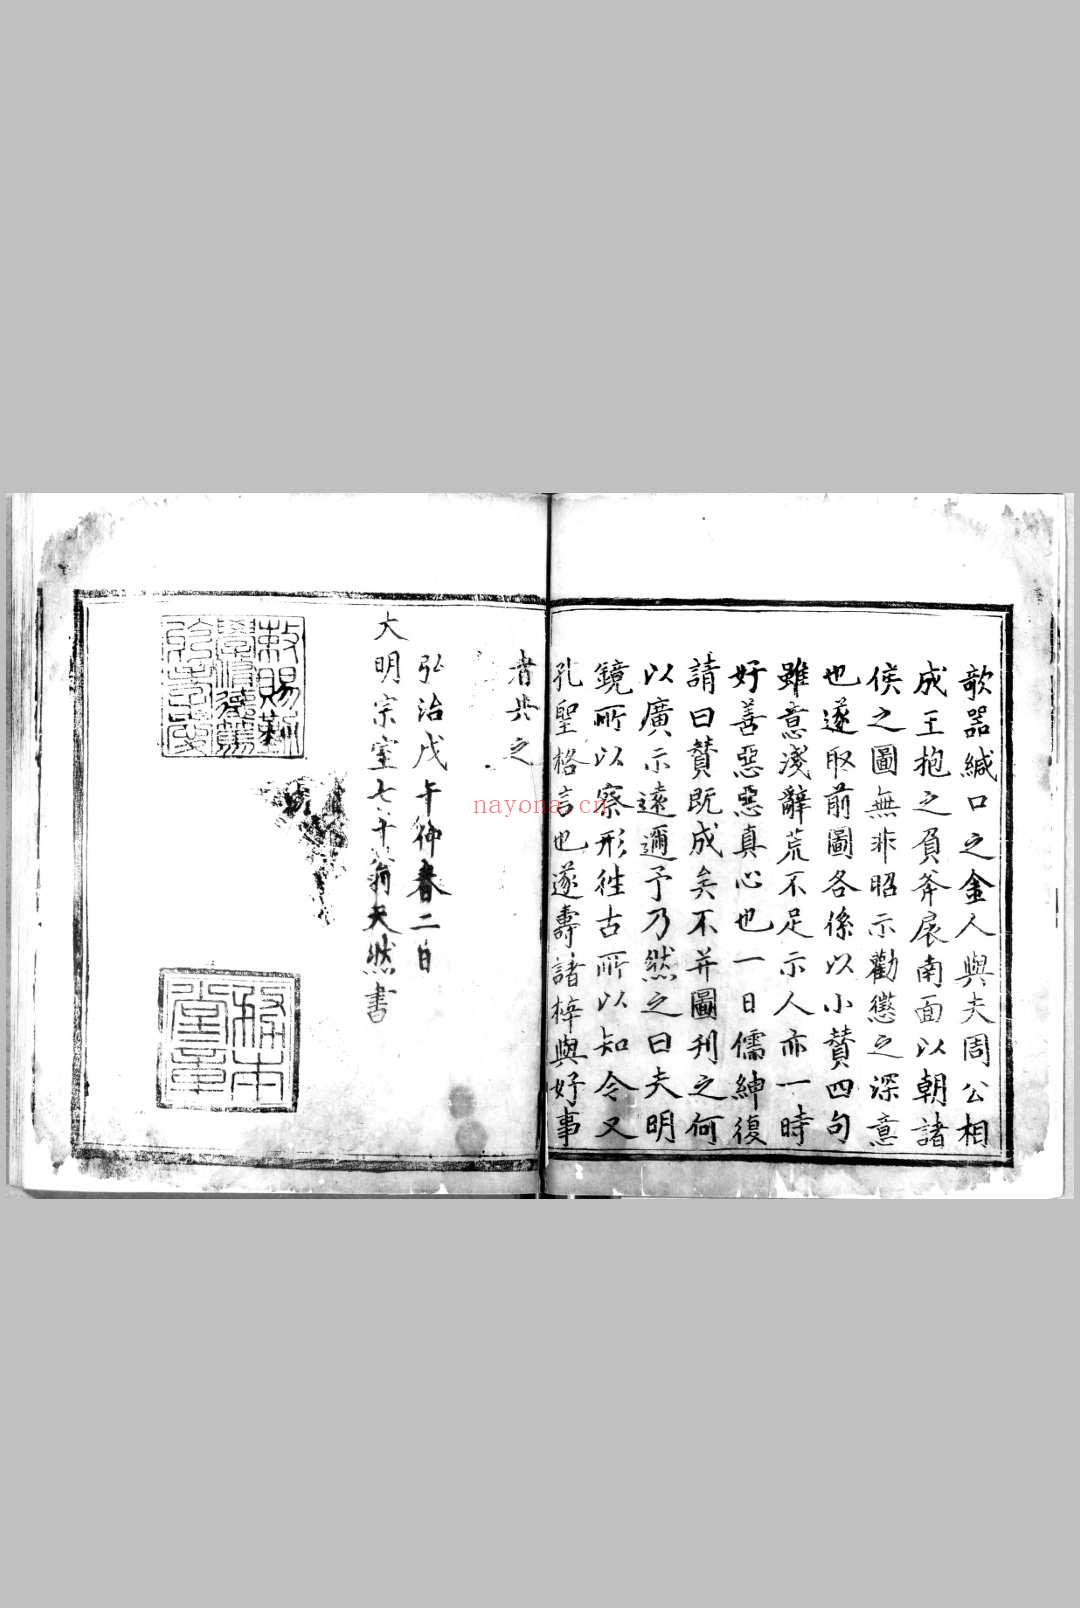 欹器緘口之金人與夫周公相
成王抱之負斧扆南面以朝諸
侯之圖無非昭示勸懲之深意
也遂取前圖各係以小贊四句
雖意淺辭荒不足示人亦一時
好善惡惡真心也一日儒紳復
請曰贊既成矣不并圖刊之何
以廣示遠邇予乃然之曰夫明
鏡所以察形徃古所以知今又
孔聖格言也遂壽諸梓與好事
者共之
弘治戊午仲春二日
大明宗室七十翁天然書
敕賜
務本堂章
nayona.cn